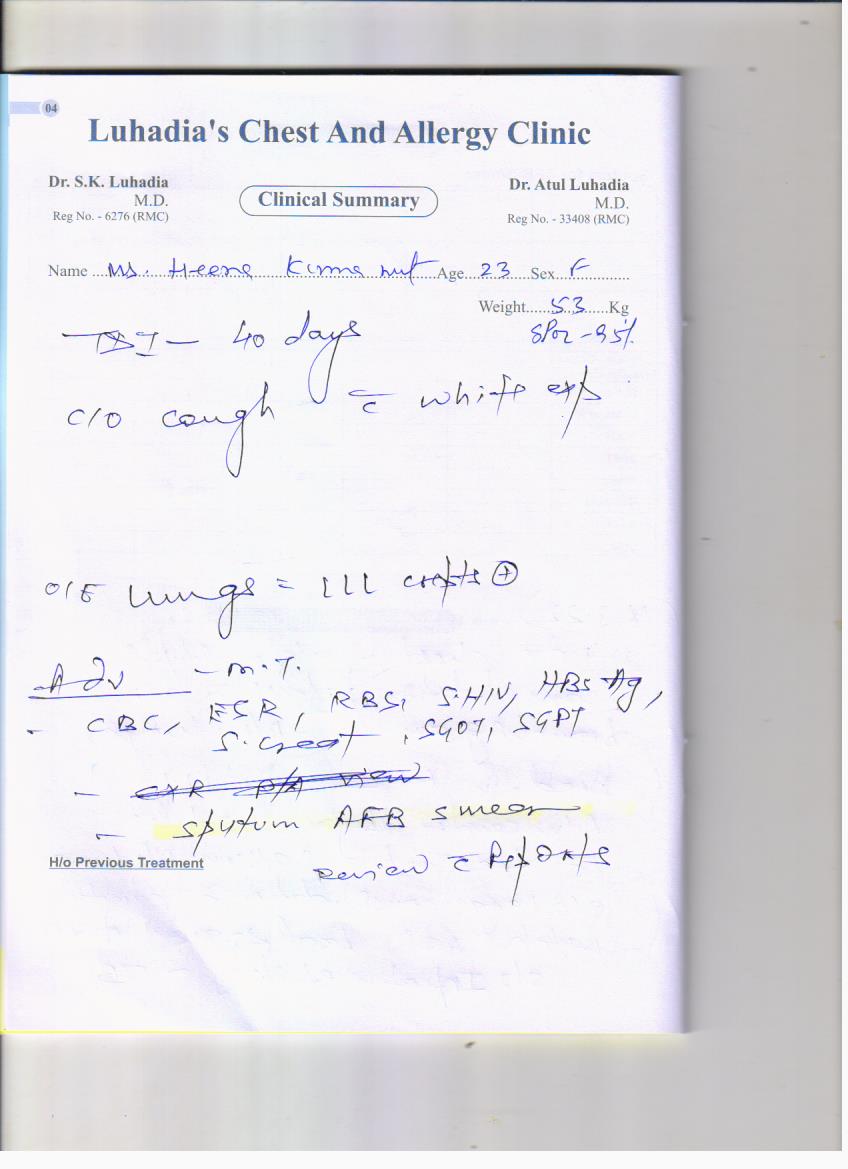 04
Luhadia's Chest And Allergy Clinic
Dr. S.K. Luhadia
M.D.
Reg No. - 6276 (RMC)
Clinical Summary
Dr. Atul Luhadia
M.D.
Reg No. - 33408 (RMC)
Name ... Ms. Heena ... Age 23 Sex F
Weight 53 Kg
SPO2 - 95%
40 days
C/O cough c̄ white exp
O/E Lungs = crepts ⊕
Adv - M.T.
- CBC, ESR, RBS, S.HIV, HBsAg,
S.Creat, SGOT, SGPT
- CXR P/A view
- Sputum AFB smear
H/o Previous Treatment
Review c̄ Reports